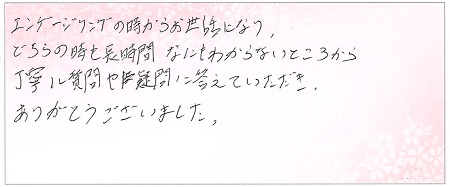 エンゲージリングの時からお世話になり、
どちらの時も長時間 なにもわからないところから
丁寧に質問や疑問に答えていただき、
ありがとうございました。